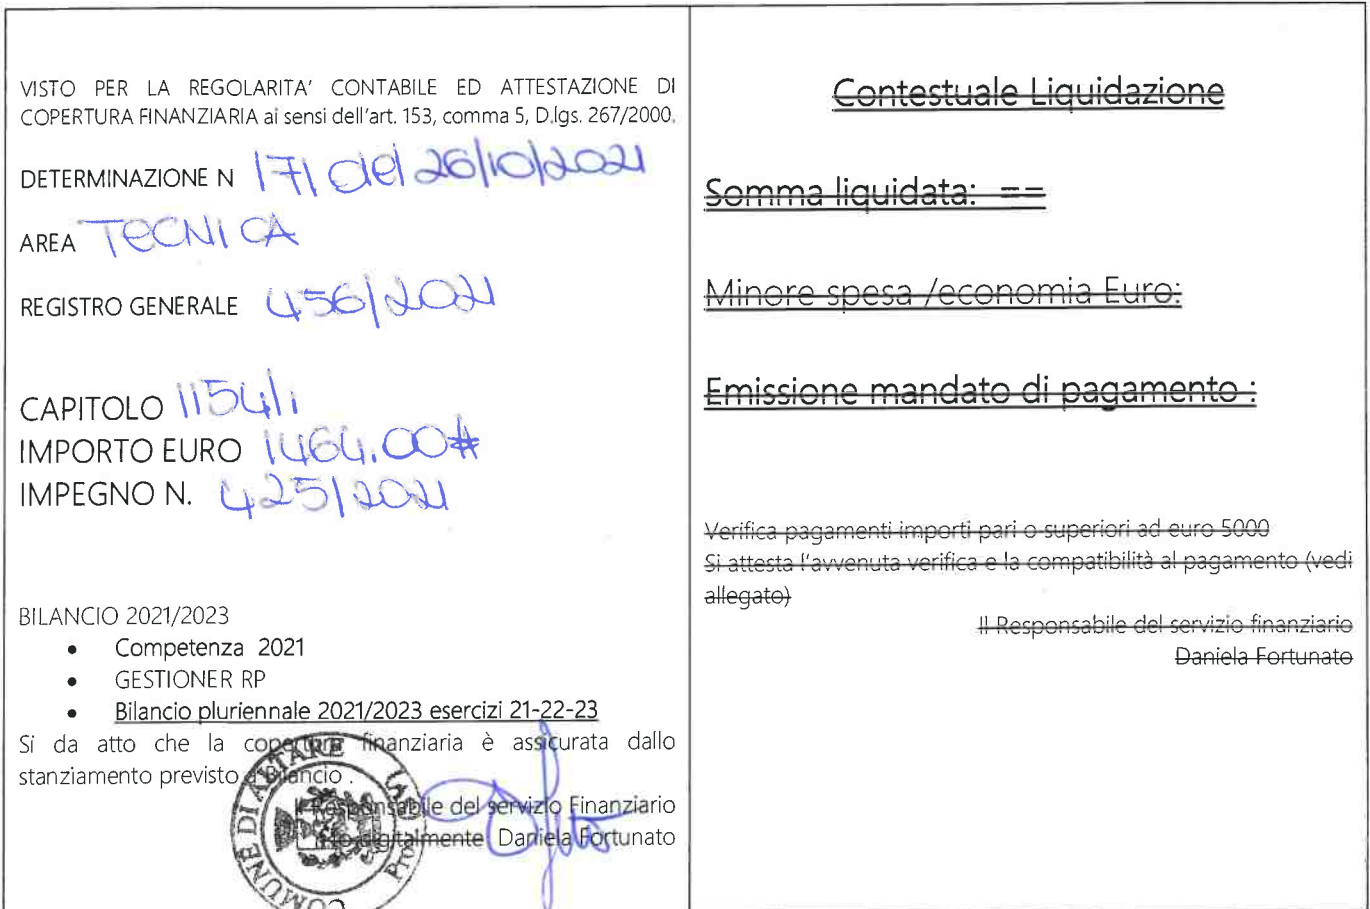 VISTO PER LA REGOLARITA' CONTABILE ED ATTESTAZIONE DI
COPERTURA FINANZIARIA ai sensi dell'art. 153, comma 5, D.lgs. 267/2000.
DETERMINAZIONE N 171 del 26/10/2021
AREA TECNICA
REGISTRO GENERALE 456/2021
CAPITOLO 1154/1
IMPORTO EURO 1464.00#
IMPEGNO N. 425/2021
BILANCIO 2021/2023
• Competenza 2021
• GESTIONER RP
• Bilancio pluriennale 2021/2023 esercizi 21-22-23
Si da atto che la copertura finanziaria è assicurata dallo
stanziamento previsto a Bilancio .
Il Responsabile del servizio Finanziario
f.to digitalmente Daniela Fortunato
COMUNE DI ALTARE
Contestuale Liquidazione
Somma liquidata: ==
Minore spesa /economia Euro:
Emissione mandato di pagamento :
Verifica pagamenti importi pari o superiori ad euro 5000
Si attesta l'avvenuta verifica e la compatibilità al pagamento (vedi
allegato)
Il Responsabile del servizio finanziario
Daniela Fortunato